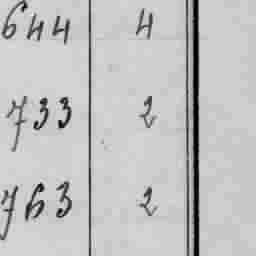 644 4
733 2
763 2